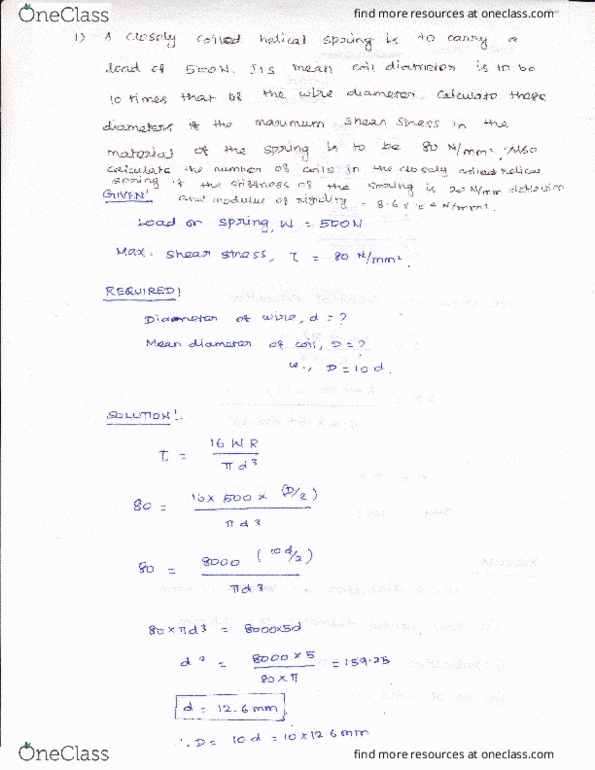 OneClass
find more resources at oneclass.com
1) A closely coiled helical spring is to carry a
load of 500N. Its mean coil diameter is to be
10 times that of the wire diameter. Calculate these
diameters if the maximum shear stress in the
material of the spring is to be 80 N/mm². Also
calculate the number of coils in the closely coiled helical
spring if the stiffness of the spring is 20 N/mm deflection
GIVEN! and modulus of rigidity = 8.4 N/mm².
Load on spring, W = 500N
Max. shear stress, τ = 80 N/mm².
REQUIRED!
Diameter of wire, d = ?
Mean diameter of coil, D = ?
D = 10d.
SOLUTION!
τ = 16WR / πd³
80 = 16 × 500 × (D/2) / πd³
80 = 8000 (10d/2) / πd³
80 × πd³ = 8000×5d
d² = 8000 × 5 / 80 × π = 159.25
d = 12.6 mm
∴ D = 10d = 10 × 12.6 mm
OneClass
find more resources at oneclass.com